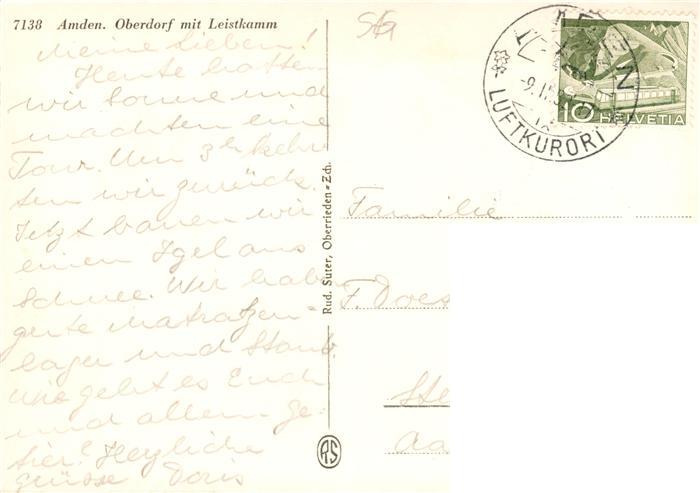 7138 Amden. Oberdorf mit Leistkamm
Meine Lieben!
Heute hatten
wir Sonne und
machten eine
Tour. Um 3h kehr
ten wir zurück.
Jetzt bauen wir
einen Igel aus
Schnee. Wir haben
gute Matratzen-
lager und Staub.
Wie geht es Euch
und allem Ge-
tier? Herzliche
Grüsse Doris
Rud. Suter, Oberrieden-Zch.
RS
LUFTKURORT
10 HELVETIA
Familie
F. Does
Ste
Aa